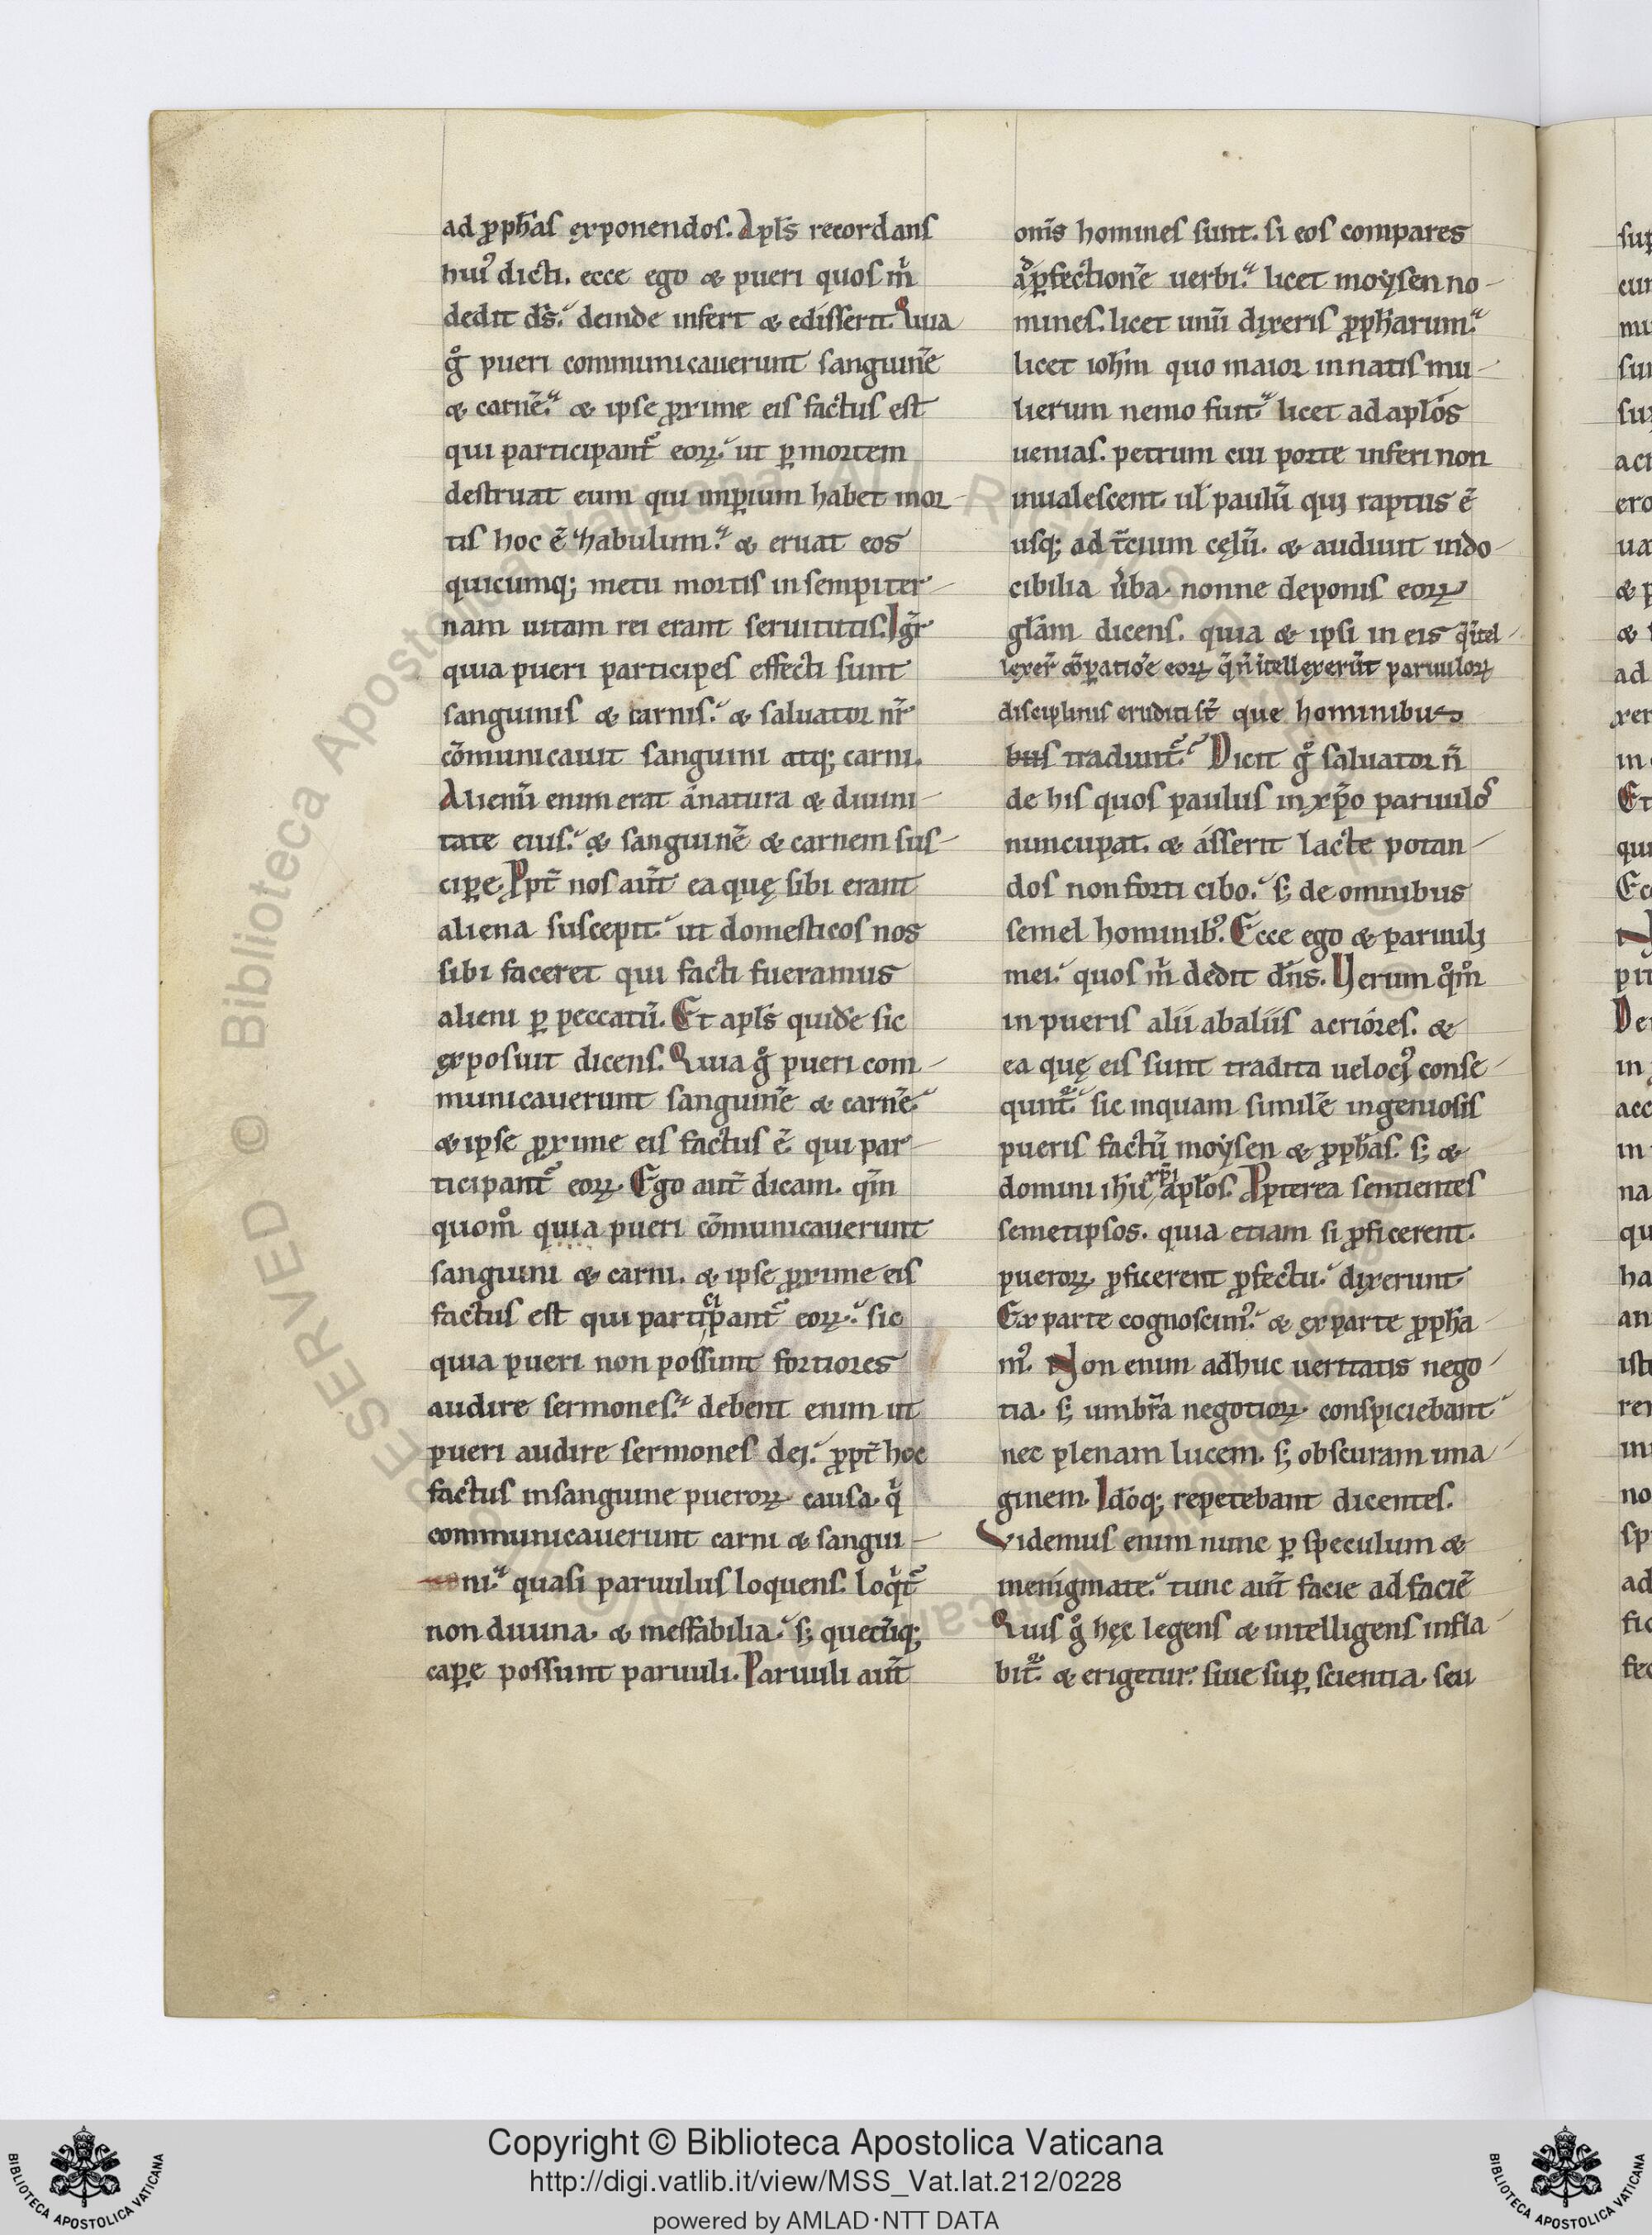 ad ꝓph̄as ęxponendos. Apl̄s recordans
hui᾽ dicti. ecce ego & pueri quos m̄
dedit ds̄. deinde infert & edisserit. Quia
gͦ pueri communicauerunt sanguinē
& carnē. & ipse ꝓxime eis factus est
qui participant᷑ eoꝝ. ut ꝑ mortem
destruat eum qui imꝑium habet mor
tis hoc ē zhabulum. & eruat eos
quicumq; metu mortis in sempiter
nam uitam rei erant seruitutis. Igr̄
quia pueri participes effecti sunt
sanguinis & carnis. & saluator nr̄
cōmunicauit sanguini atq; carni.
Alienū enim erat a natura & diuini
tate eius. & sanguinē & carnem sus
ciꝑe. Ppt̄ nos aūt ea quę sibi erant
aliena suscepit. ut domesticos nos
sibi faceret qui facti fueramus
alieni ꝑ peccatū. Et apl̄s quidē sic
ęxposuit dicens. Quia gͦ pueri com
municauerunt sanguinē & carnē.
& ipse ꝓxime eis factus ē qui par
ticipant᷑ eoꝝ. Ego aut̄ dicam. qm̄
quom̊ quia pueri cōmunicauerunt
sanguini & carni. & ipse ꝓxime eis
factus est qui participant᷑ eoꝝ. sic
quia pueri non possunt fortiores
audire sermones. debent enim ut
pueri audire sermones dei. ꝓpt̄ hoc
factus in sanguine pueroꝝ causa. q̇
communicauerunt carni & sangui
ni. quasi paruulus loquens. loq̇t᷑
non diuina. & ineffabilia. s; quecūq;
caꝑe possunt paruuli. Paruuli aūt
om̄s homines sunt. si eos compares
ad ꝑfectionē uerbi. licet moẏsen no
mines. licet unū dixeris ꝓph̄arum.
licet ioh̄m quo maior in natis mu
lierum nemo fuit. licet ad apl̄os
uenias. petrum cui porte inferi non
inualescent. ul̄ paulū qui raptus ē
usq; ad t̄cium cęlū. & audiuit indo
cibilia ūba. nonne deponis eoꝝ
gl̄am dicens. quia & ipsi in eis q̄ ītel
lexer̄ cōꝑatiōe eoꝝ q̄ n̄ ītellexerūt paruuloꝝ
disciplinis eruditi st̄ que hominibus
bus tradunt᷑. Dicit gͦ saluator n̄
de his quos paulus in xp̄o paruulos
nuncupat. & asserit lacte potan
dos non forti cibo. s; de omnibus
semel hominib᾽. Ecce ego & paruuli
mei. quos m̄ dedit dn̄s. Uerum qm̊
in pueris alii ab aliis acriores. &
ea quę eis sunt tradita ueloci᾽ conse
qunt᷑. sic inquam similē ingeniosis
pueris factū moẏsen & ꝓph̄as. s; &
domini ih̄u xp̄i apl̄os. Ppterea sentientes
semetipsos. quia etiam si ꝓficerent.
pueroꝝ ꝓficerent ꝓfectu. dixerunt.
Ex parte cognoscim᾽. & ęx parte ꝓpha
m᾽. Non enim adhuc ueritatis nego
tia. s; umbrā negotioꝝ conspiciebant.
nec plenam lucem. s; obscuram ima
ginem. Idōq; repetebant dicentes.
Videmus enim nunc ꝑ speculum &
in enigmate. tunc aūt facie ad faciē
Quis gͦ hęc legens & intelligens infla
bit᷑. & erigetur. siue suꝑ scientia. seu
Copyright © Biblioteca Apostolica Vaticana
http://digi.vatlib.it/view/MSS_Vat.lat.212/0228
powered by AMLAD·NTT DATA